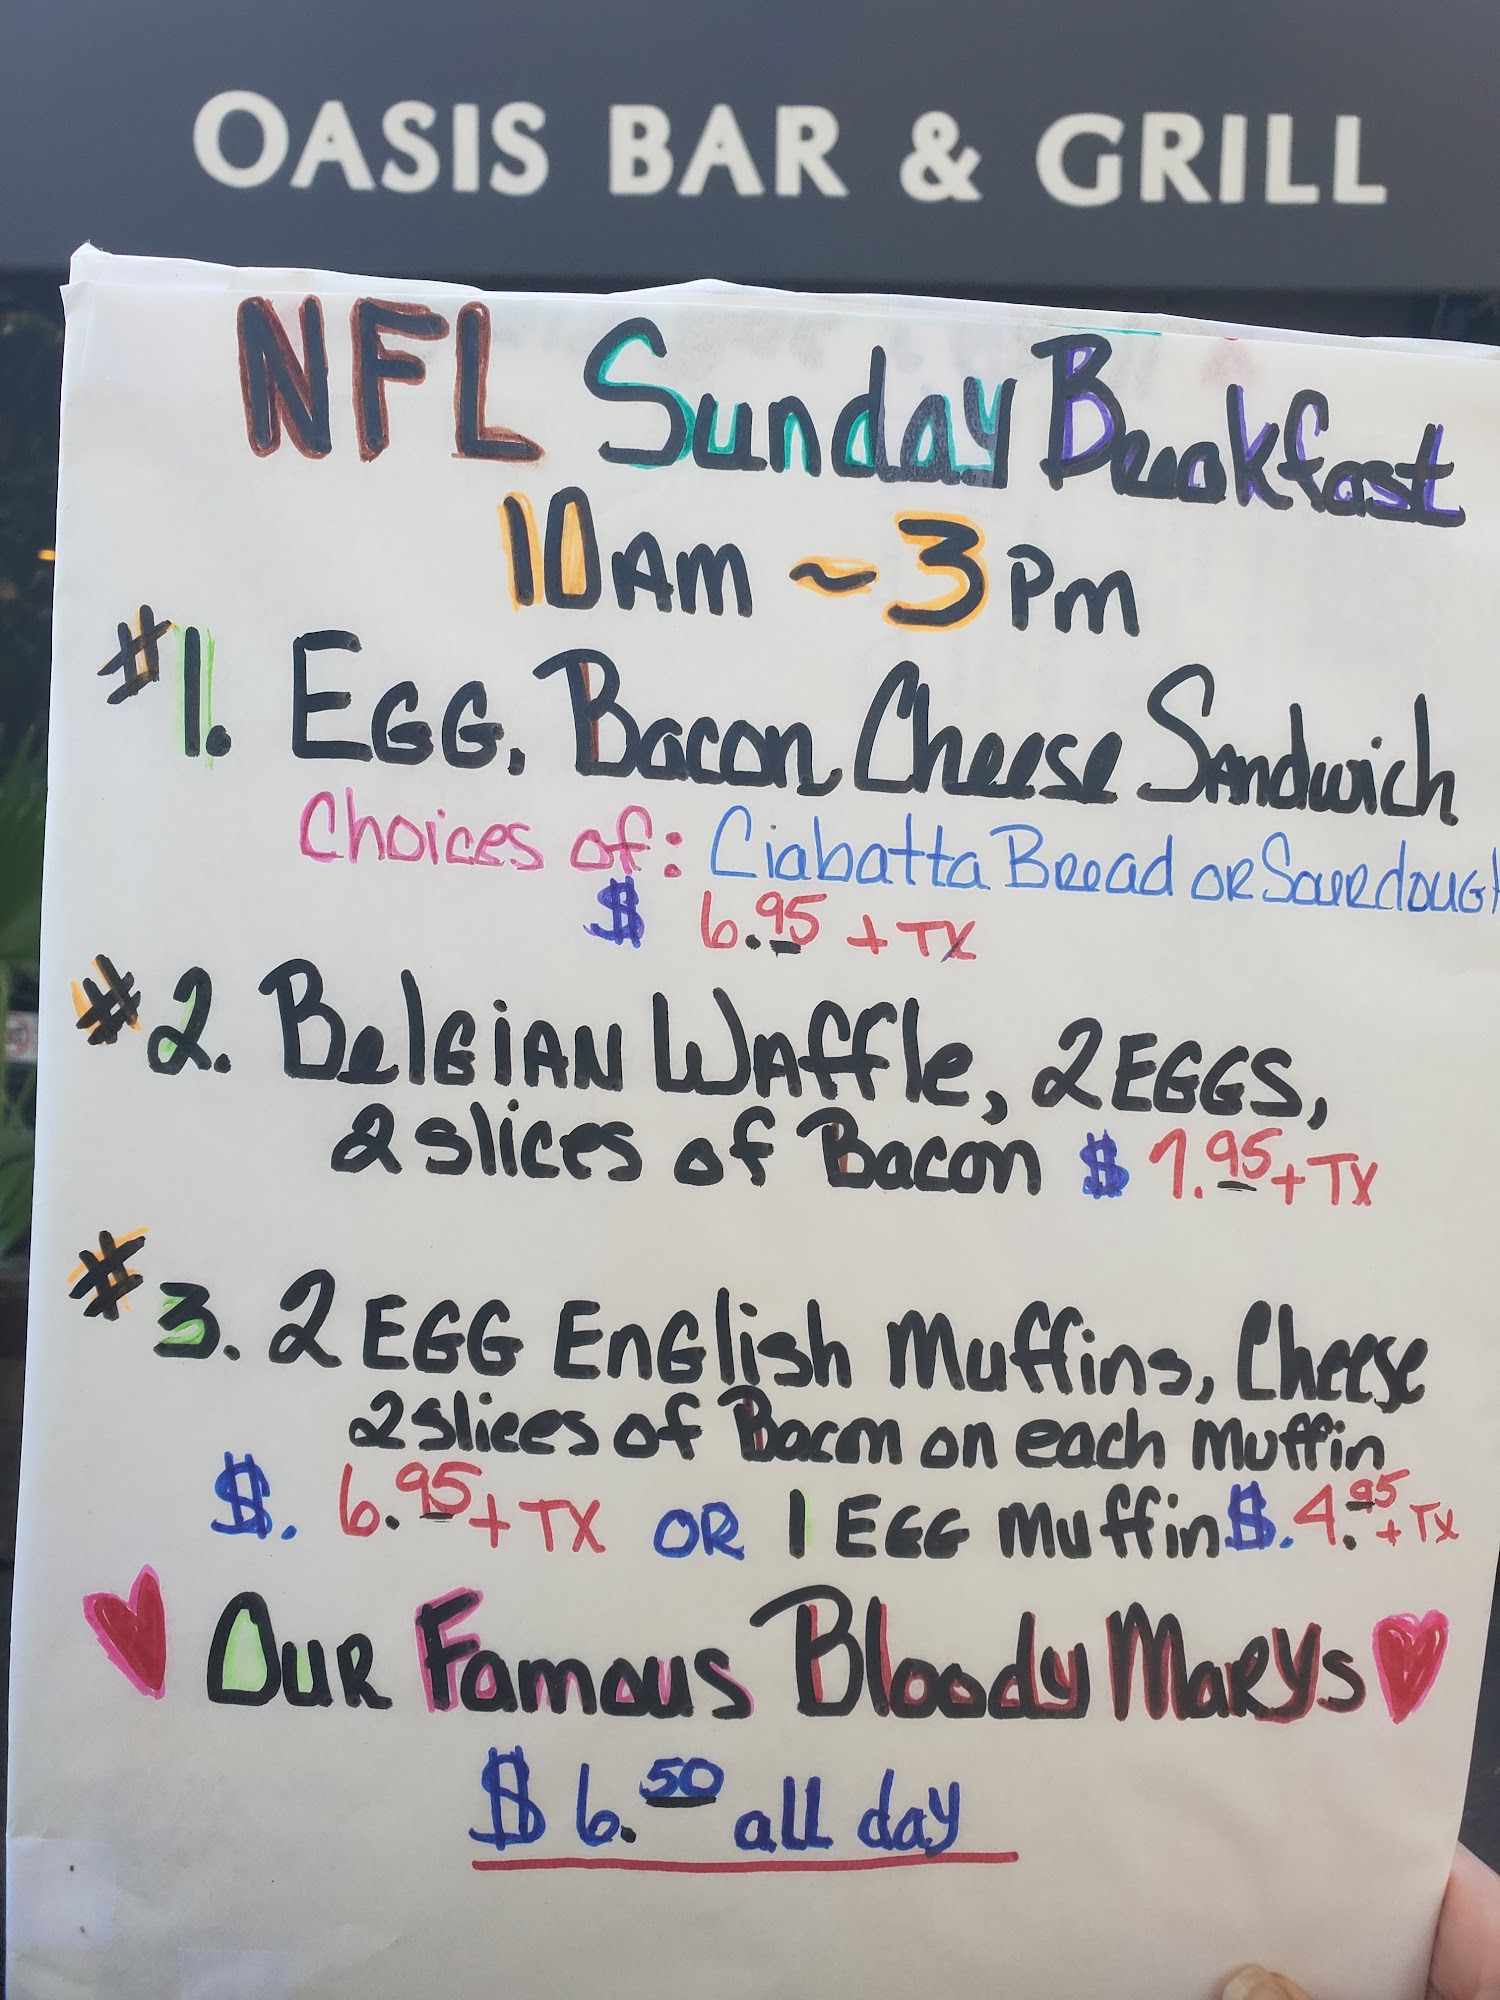 OASIS BAR & GRILL
NFL Sunday Breakfast
10AM ~ 3PM
#1. EGG, Bacon, Cheese Sandwich
Choices of: Ciabatta Bread OR Sourdough
$ 6.95 + TX
#2. Belgian Waffle, 2 EGGS,
2 slices of Bacon $ 7.95 + TX
#3. 2 EGG English Muffins, Cheese
2 slices of Bacon on each muffin
$. 6.95 + TX OR 1 EGG muffin $. 4.95 + TX
OUR Famous Bloody Marys
$ 6.50 all day